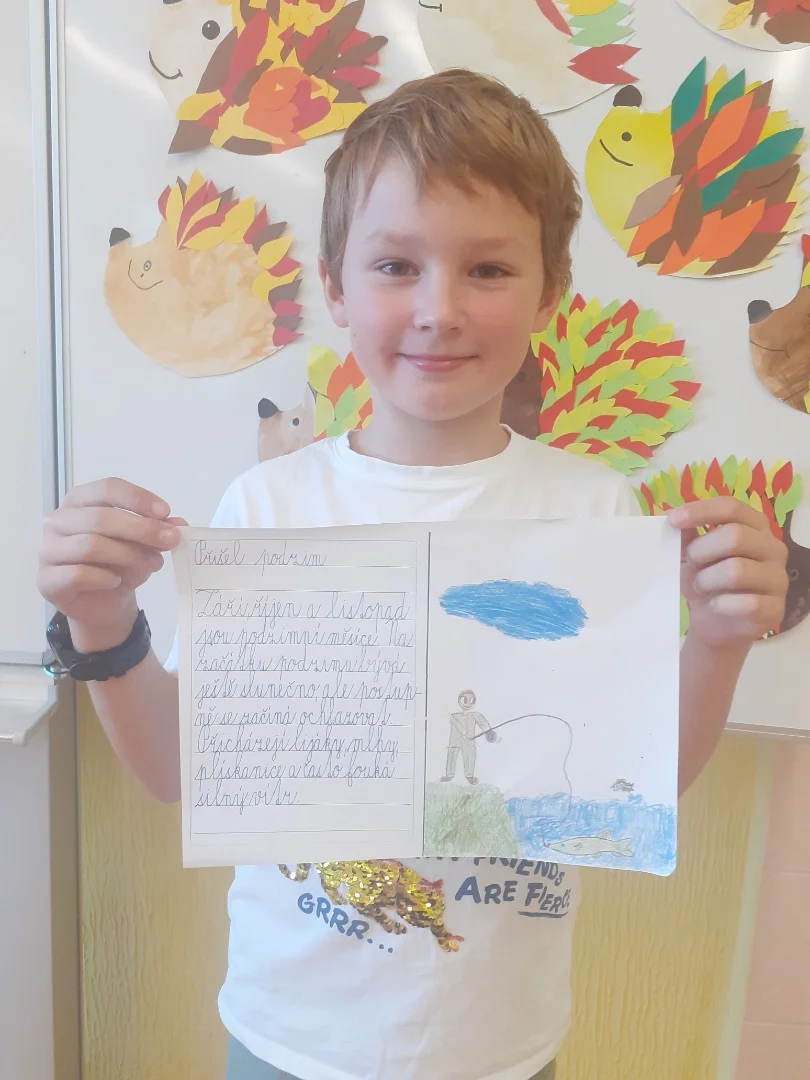 Přišel podzim
Září říjen a listopad
jsou podzimní měsíce. Na
začátku podzimu bývá
ještě slunečno ale postup-
ně se začíná ochlazovat.
Přicházejí lijáky, mlhy,
plískanice a často fouká
silný vítr.
FRIENDS
ARE FIERCE
GRRR...